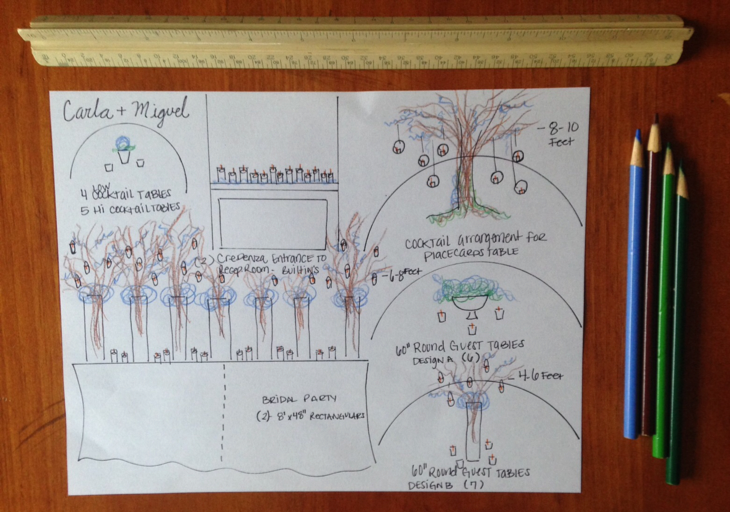 Carla + Miguel
4 Low COCKTAIL TABLES
5 Hi COCKTAIL TABLES
(2) CREDENZA ENTRANCE TO
RECEP ROOM - BUILT INS
-6-8 Feet
BRIDAL PARTY
(2) 8'x48" RECTANGULARS
-8-10
Feet
COCKTAIL Arrangement FOR
PLACECARDS TABLE
60" Round GUEST TABLES
DESIGN A (6)
-4-6 Feet
60" Round GUEST TABLES
DESIGN B (7)